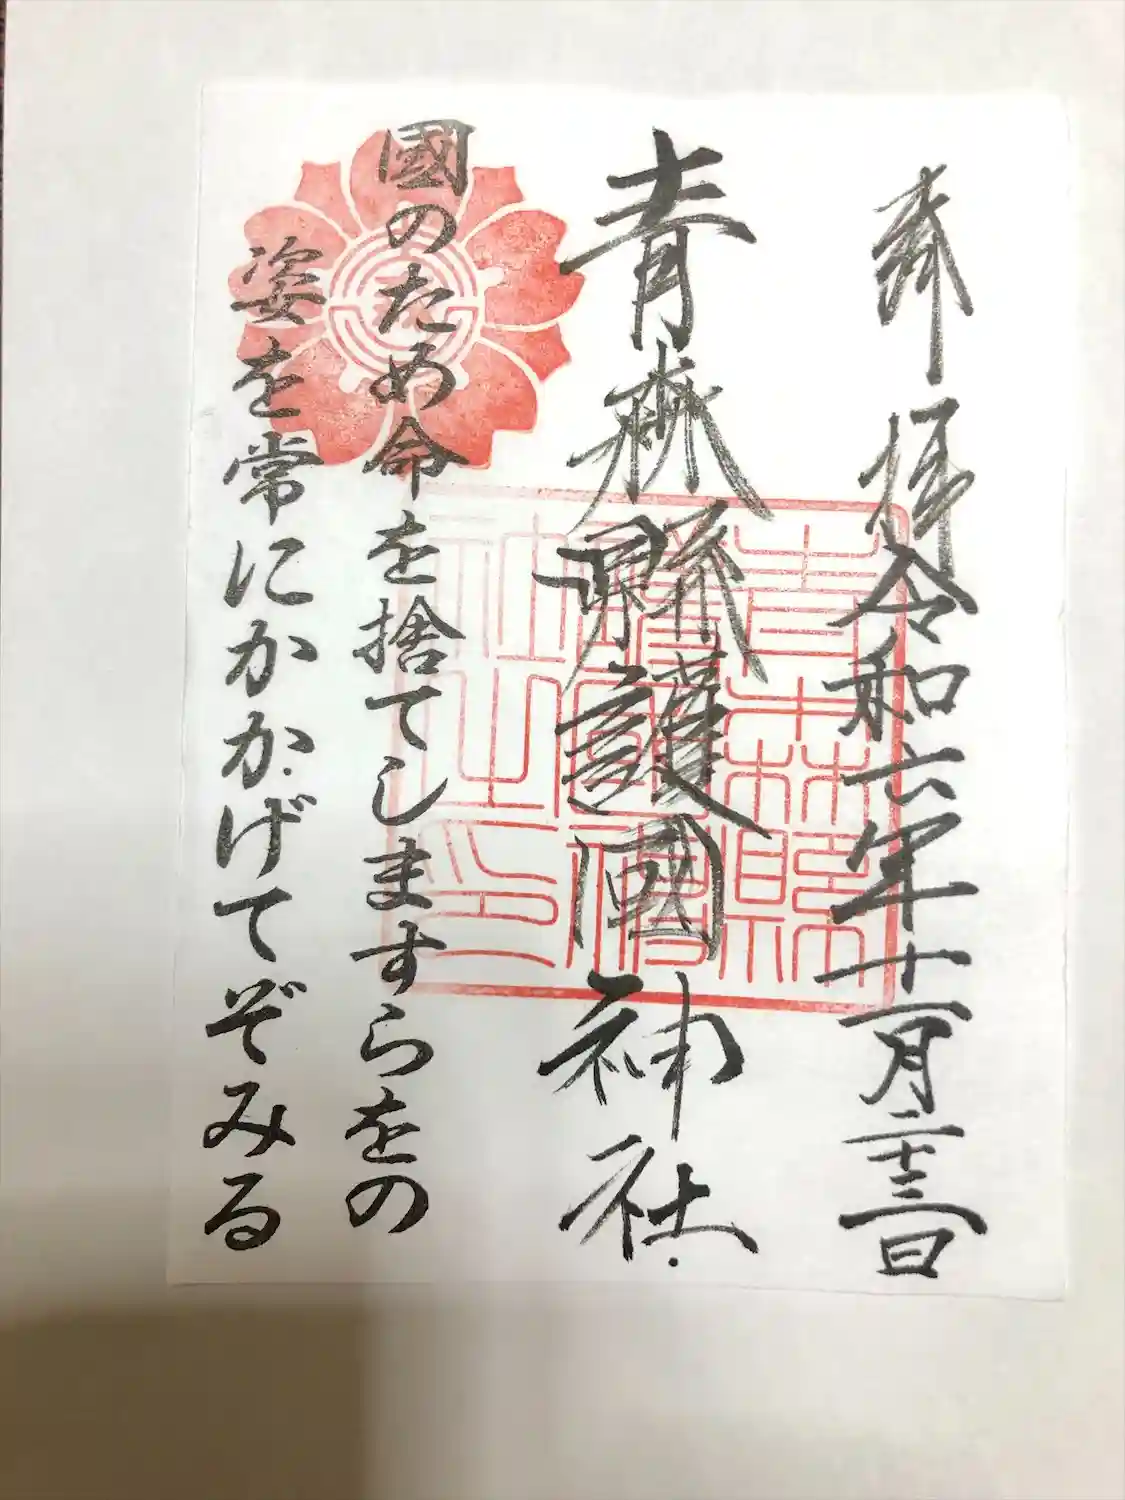 奉拝 令和六年十一月二十三日
青森縣護國神社
國のため命を捨てしますらをの
姿を常にかかげてぞみる
青森縣
護國神
社之印